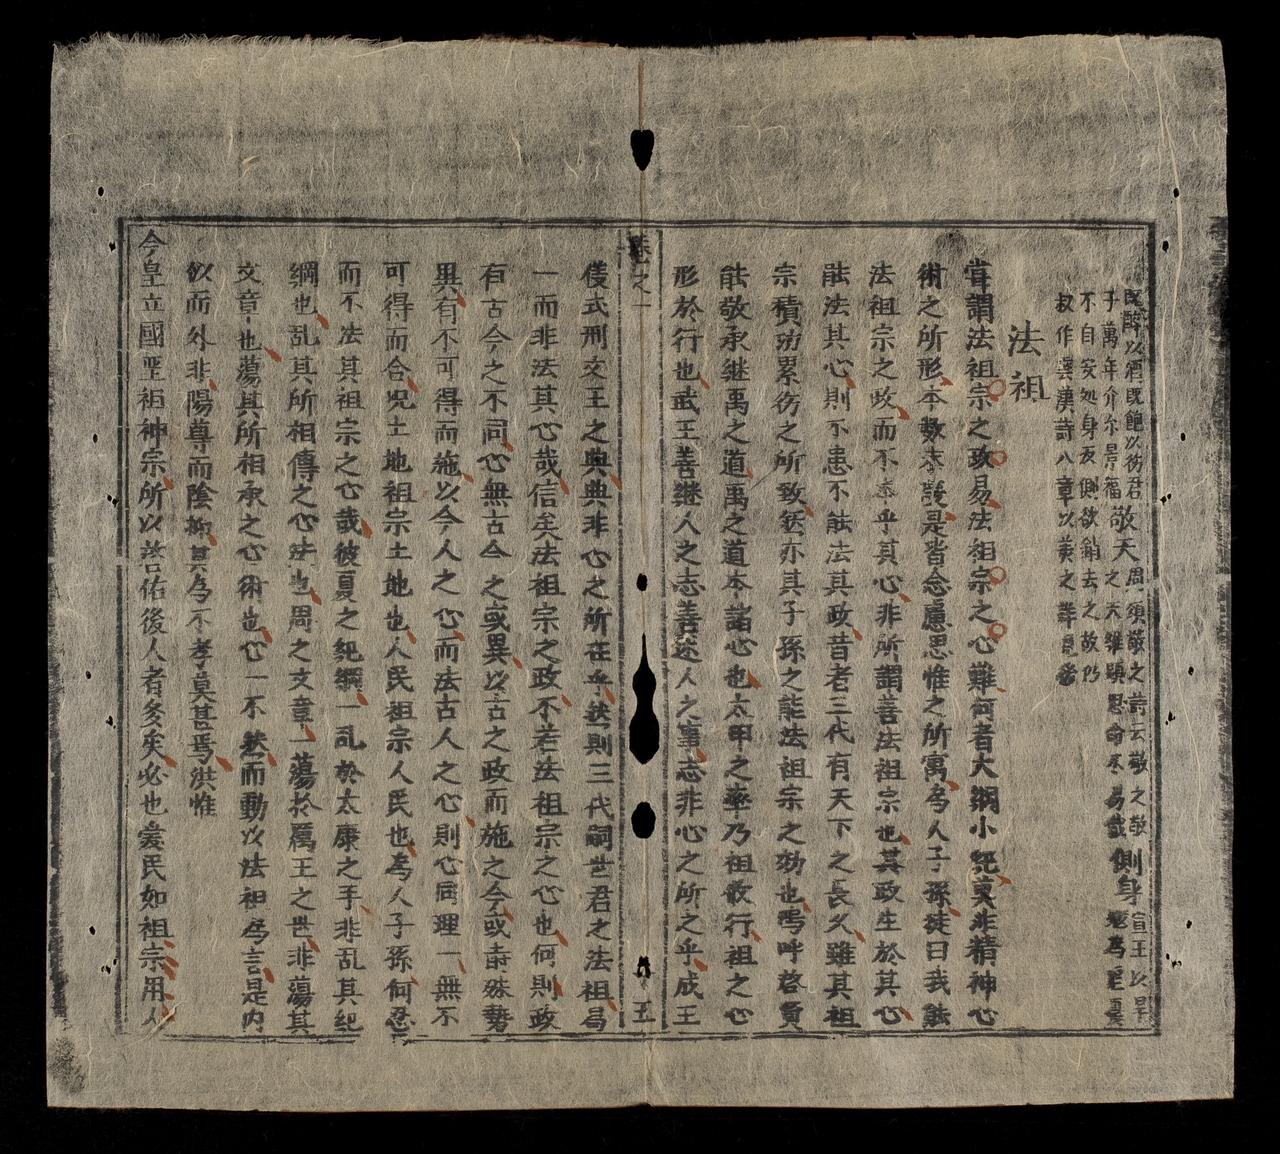 既醉以酒既飽以德君
子萬年介尔景福敬天周頌敬之詩云敬之敬
之天難顯思命不易哉側身宣王以旱
不自安処身反側欲銷去之故仍
叔作雲漢詩八章以美之
法祖
嘗謂法祖宗之政易法祖宗之心難何者大綱小紀莫非精神心
術之所形本數末度是皆念慮思惟之所寓為人子孫徒曰我能
法祖宗之政而不本乎其心非所謂善法祖宗也其政生於其心
能法其心則不患不能法其政昔者三代有天下之長久雖其祖
宗積功累德之所致然亦其子孫之能法祖宗之功也嗚呼啓賢
能敬承継禹之道禹之道本諸心也太甲之率乃祖攸行祖之心
形於行也武王善継人之志善述人之事志非心之所之乎成王
卷之一 五
儀式刑文王之典典非心之所在乎然則三代嗣世君之法祖曷
一而非法其心哉信矣法祖宗之政不若法祖宗之心也何則政
有古今之不同心無古今之或異以古之政而施之今或時殊勢
異有不可得而施以今人之心而法古人之心則心同理一無不
可得而合況土地祖宗土地也人民祖宗人民也為人子孫何忍
而不法其祖宗之心哉彼夏之紀綱一乱於太康之手非乱其紀
綱也乱其所相傳之心法也周之文章一蕩於厲王之世非蕩其
文章也蕩其所相承之心術也心一不然而動以法祖為言是内
欺而外非陽尊而陰抑其為不孝莫甚焉洪惟
今皇立國聖祖神宗所以啓佑後人者多矣必也愛民如祖宗用人